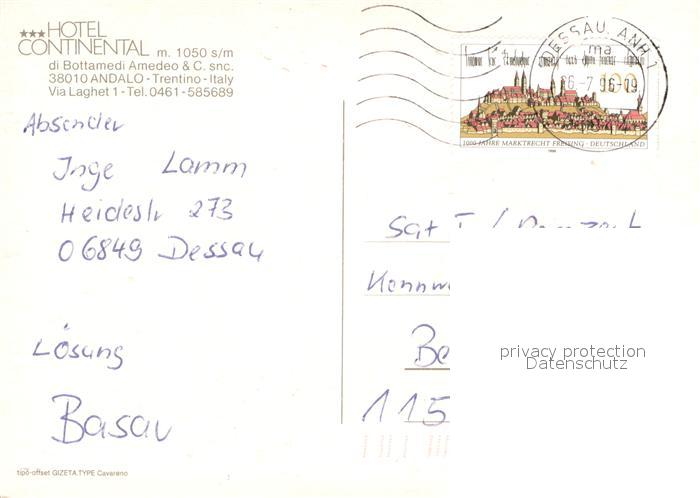 ★★★HOTEL
CONTINENTAL m. 1050 s/m
di Bottamedi Amedeo & C. snc.
38010 ANDALO - Trentino - Italy
Via Laghet 1 - Tel. 0461 - 585689
Absender
Inge Lamm
Heidestr 273
06849 Dessau
Lösung
Basau
tipo-offset GIZETA.TYPE Cavareno
DESSAU, ANH 1
ma
-7
96-19
100
1000 JAHRE MARKTRECHT FREISING - DEUTSCHLAND
Sat
Kennw
Be
115
privacy protection
Datenschutz